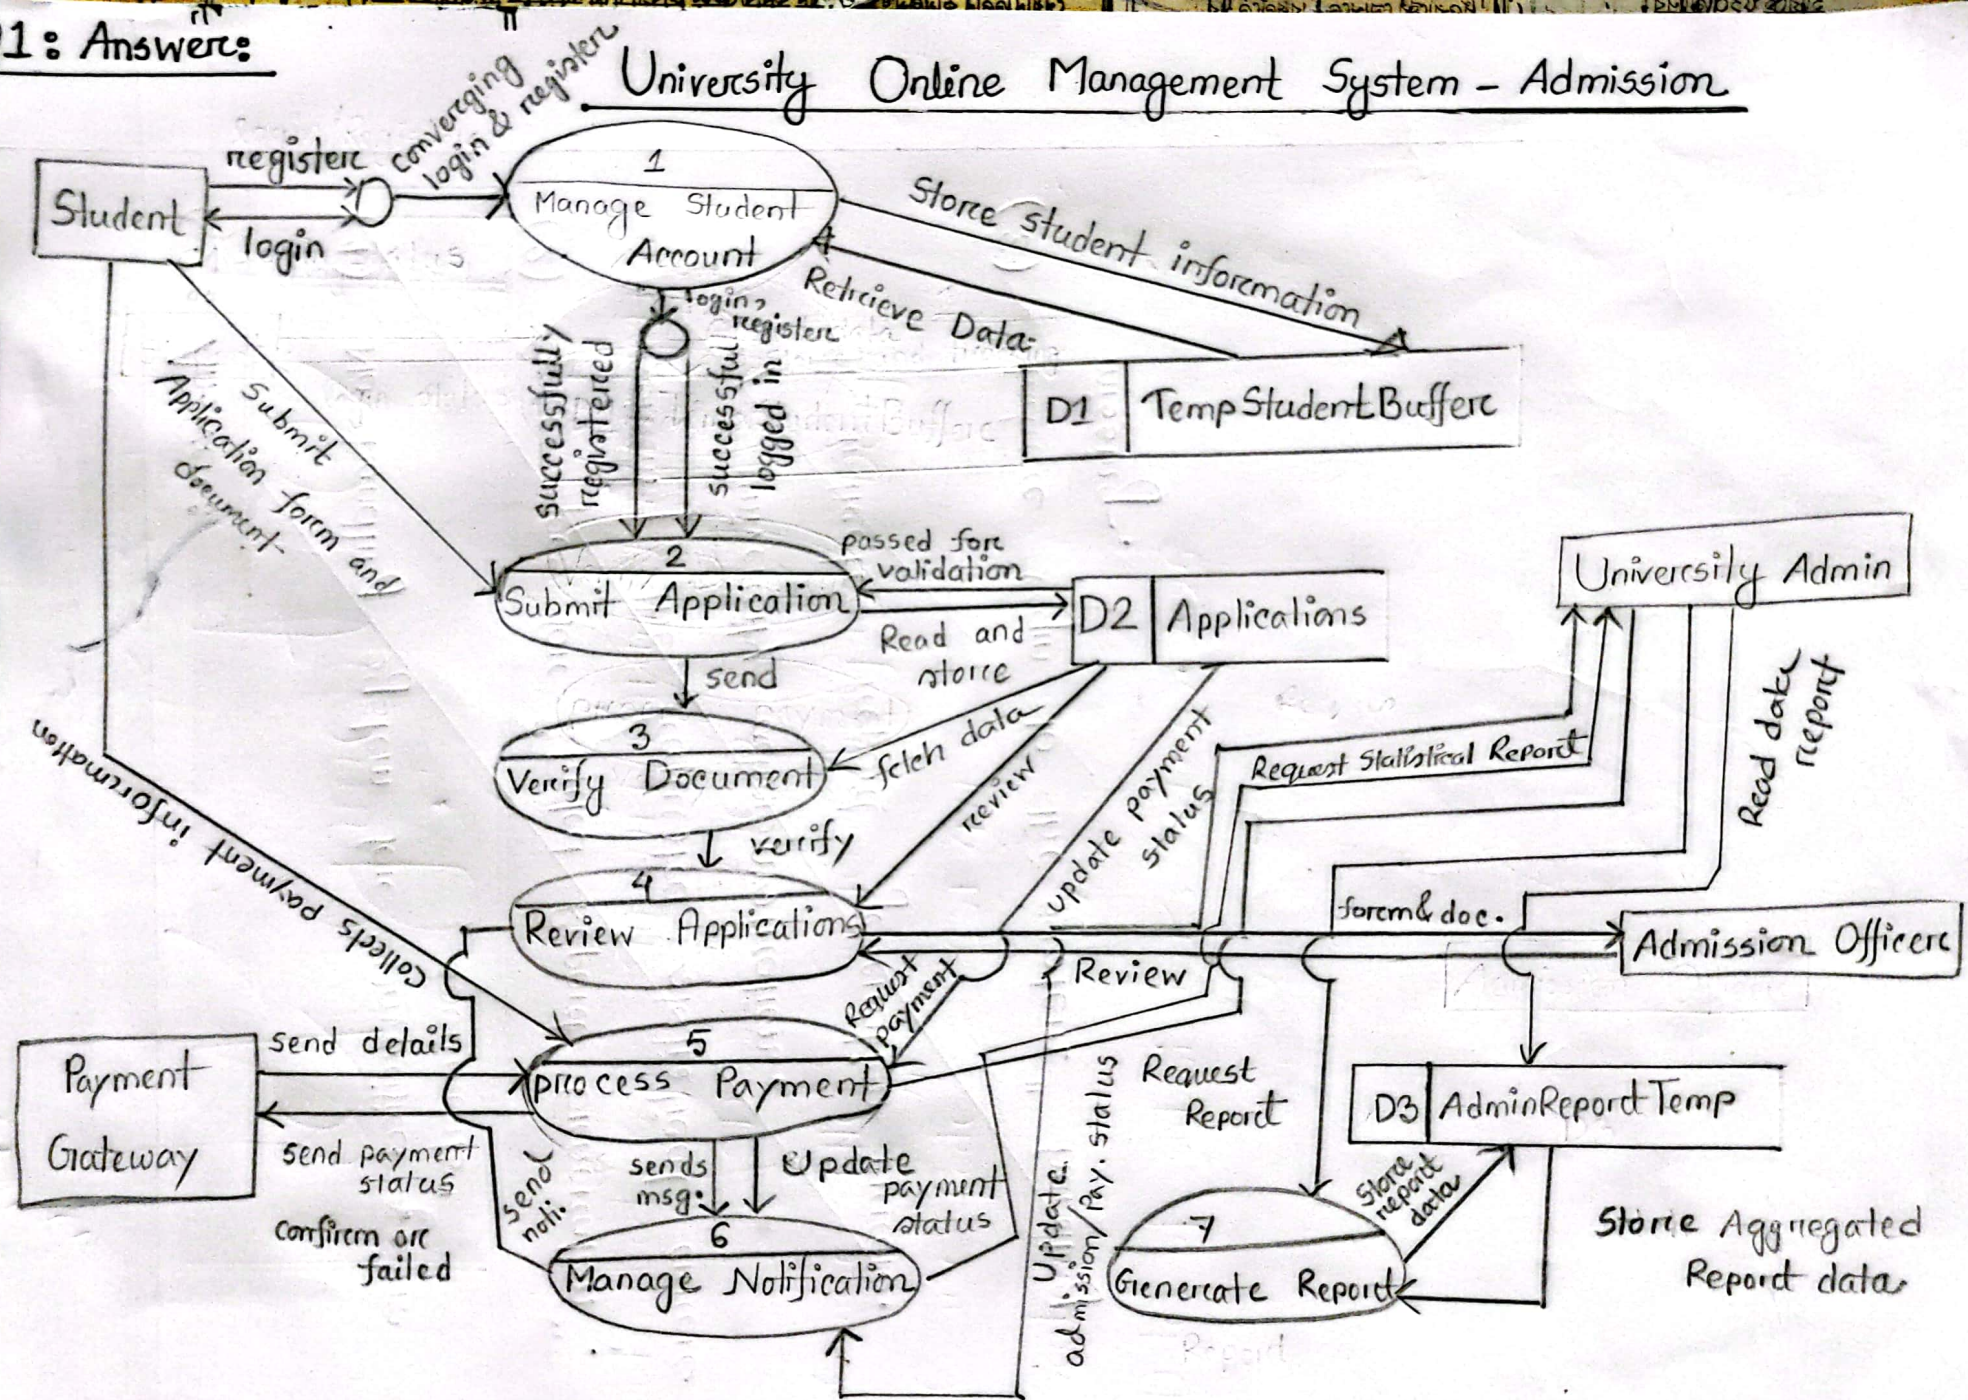 1: Answer:
University Online Management System - Admission
Student
register
login
converging
login & register
1
Manage Student
Account
Store student information
Retrieve Data.
D1 TempStudentBuffer
login,
register
successfully
registered
successful
logged in
Submit
Application form and
document
2
Submit Application
passed for
validation
Read and
store
D2 Applications
University Admin
send
3
Verify Document
fetch data
review
update payment
status
Request Statistical Report
Read data
report
verify
4
Review Applications
form & doc.
Review
Admission Officer
collects payment information
Request
payment
Payment
Gateway
send details
send payment
status
confirm or
failed
5
process Payment
send
noti.
sends
msg.
Update
payment
status
6
Manage Notification
Update
admission/Pay. status
Request
Report
D3 AdminReportTemp
Store
report
data
7
Generate Report
Store Aggregated
Report data